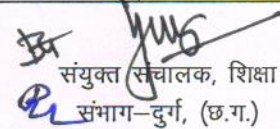 संयुक्त संचालक, शिक्षा
संभाग–दुर्ग, (छ.ग.)